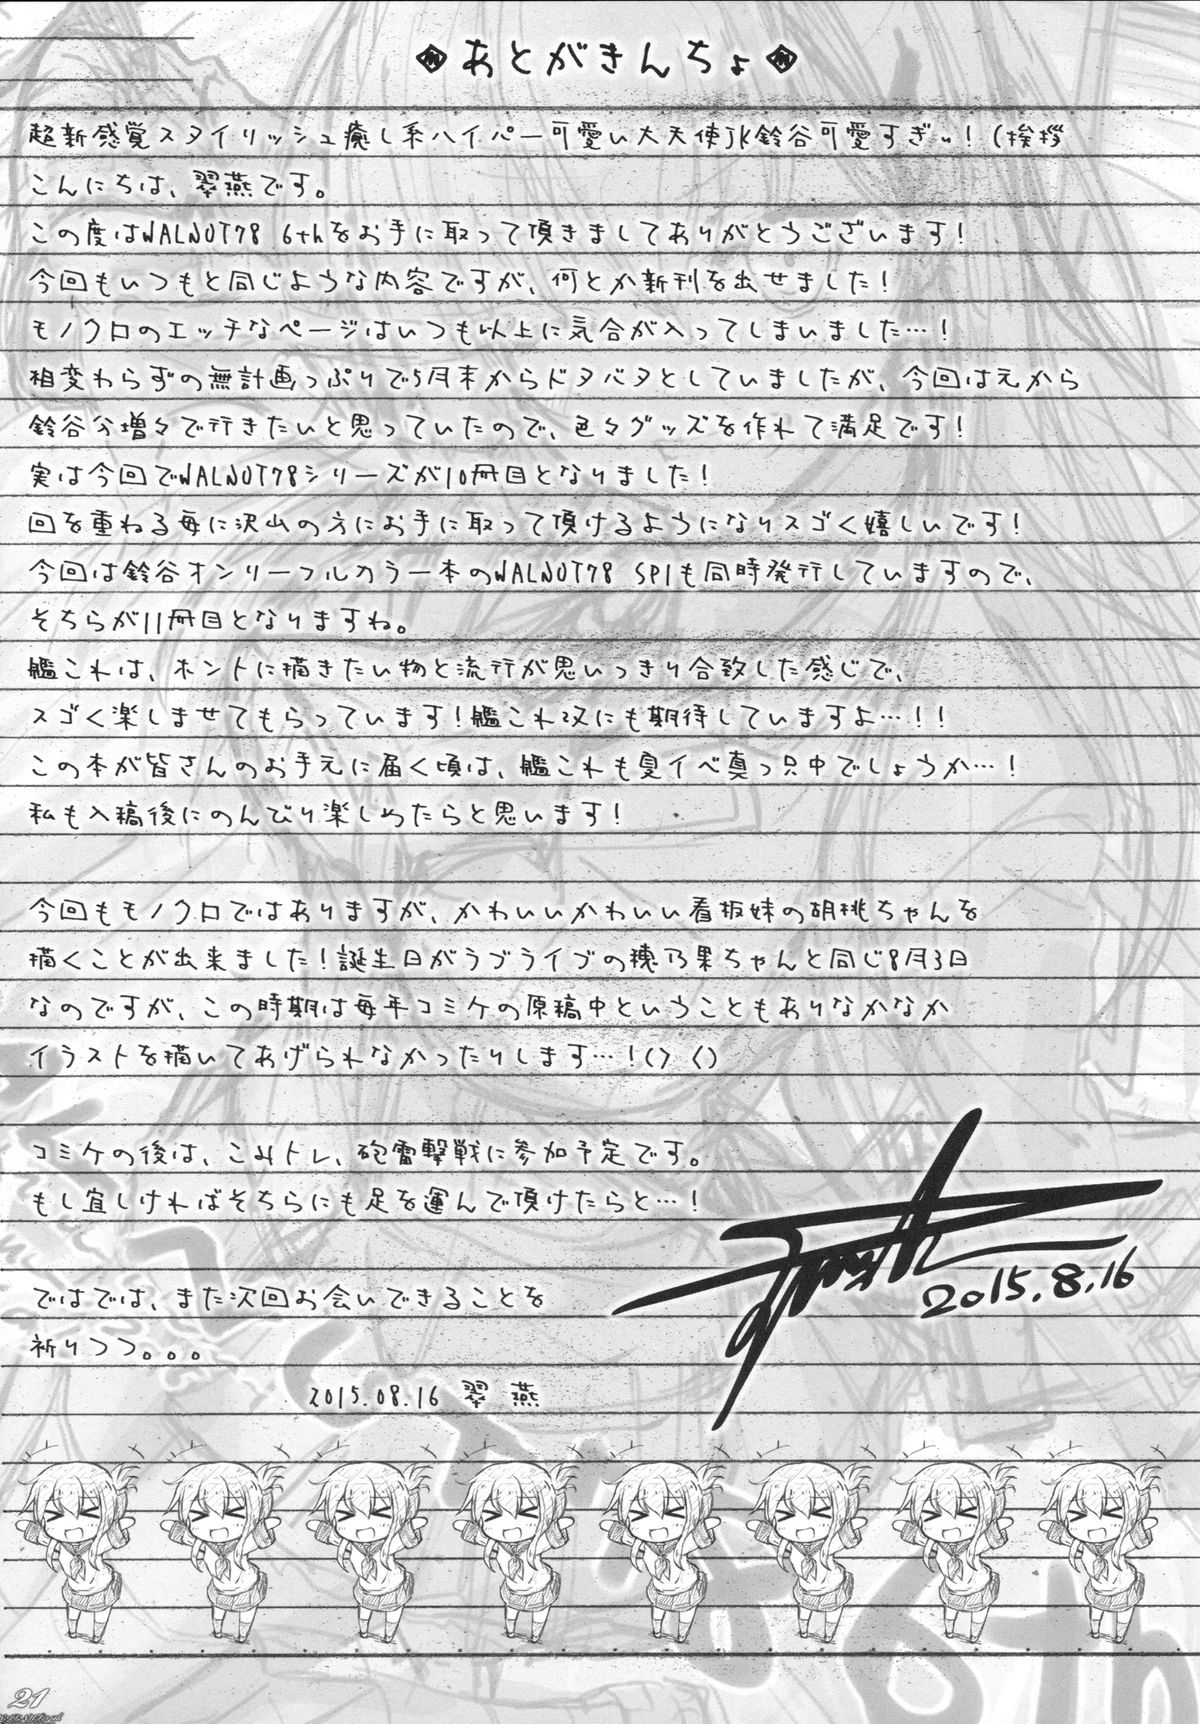 ◈あとがきんちょ◈
超新感覚スタイリッシュ癒し系ハイパー可愛い大天使JK鈴谷可愛すぎぃ!(挨拶
こんにちは、翠燕です。
この度はWALNOT78 6thをお手に取って頂きましてありがとうございます!
今回もいつもと同じような内容ですが、何とか新刊を出せました!
モノクロのエッチなページはいつも以上に気合が入ってしまいました…!
相変わらずの無計画っぷりで5月末からドタバタとしていましたが、今回は元から
鈴谷分増々で行きたいと思っていたので、色々グッズを作れて満足です!
実は今回でWALNOT78シリーズが10冊目となりました!
回を重ねる毎に沢山の方にお手に取って頂けるようになりスゴく嬉しいです!
今回は鈴谷オンリーフルカラー本のWALNOT78 SP1も同時発行していますので、
そちらが11冊目となりますね。
艦これは、ホントに描きたい物と流行が思いっきり合致した感じで、
スゴく楽しませてもらっています!艦これ改にも期待していますよ…!!
この本が皆さんのお手元に届く頃は、艦これも夏イベ真っ只中でしょうか…!
私も入稿後にのんびり楽しめたらと思います!
今回もモノクロではありますが、かわいいかわいい看板妹の胡桃ちゃんを
描くことが出来ました!誕生日がラブライブの穂乃果ちゃんと同じ8月3日
なのですが、この時期は毎年コミケの原稿中ということもありなかなか
イラストを描いてあげられなかったりします…!() ()
コミケの後は、こみトレ、砲雷撃戦に参加予定です。
もし宜しければそちらにも足を運んで頂けたらと…!
2015.8.16
ではでは、また次回お会いできることを
祈りつつ。。。
2015.08.16 翠燕
6th
21